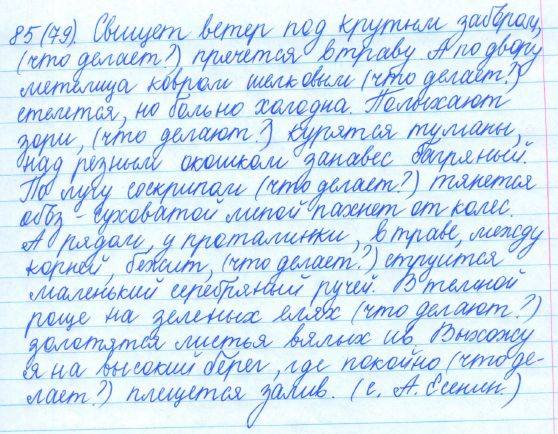 85(79). Свищет ветер под крутым забором,
(что делает?) прячется в траву. А по двору
метелица ковром шелковым (что делает?)
стелется, но больно холодна. Полыхают
зори, (что делают?) курятся туманы,
над резным окошком занавес багряный.
По лугу со скрипом (что делает?) тянется
обоз - суховатой липой пахнет от колес.
А рядом, у проталинки, в траве, между
корней, бежит, (что делает?) струится
маленький серебряный ручей. В темной
роще на зеленых елях (что делают?)
золотятся листья вялых ив. Выхожу
я на высокий берег, где покойно (что де-
лает?) плещется залив. (с. А. Есенин.)